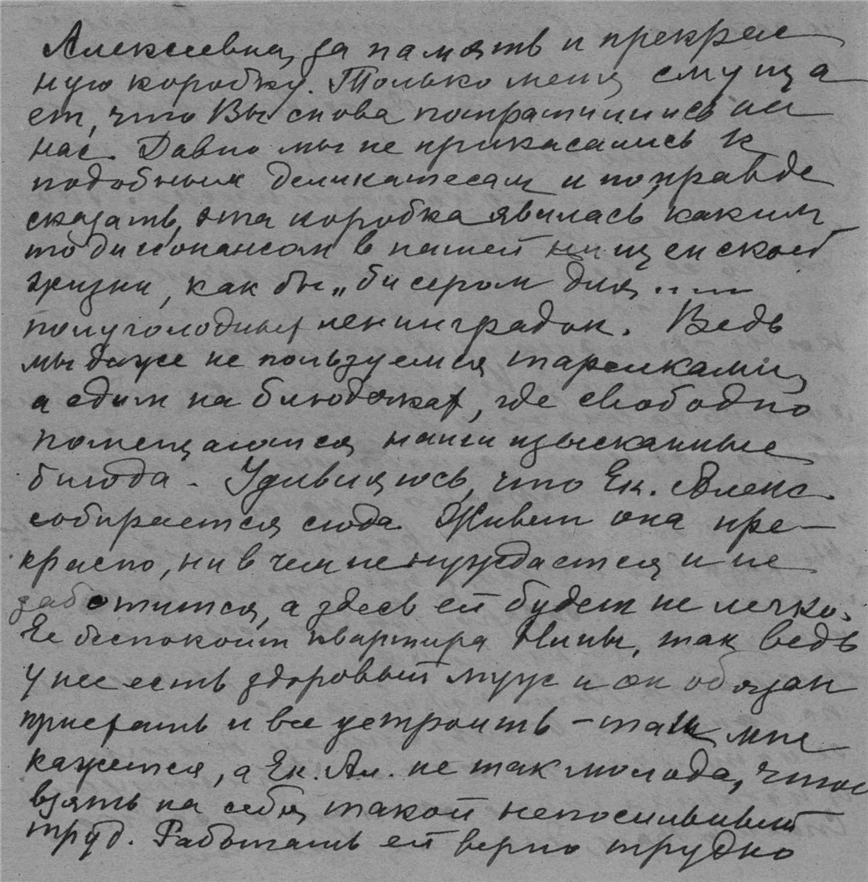 Алексеевна, за память и прекрас
ную коробку. Только меня смуща
ет, что Вы снова потратились на
нас. Давно мы не прикасались к
подобным деликатесам и по правде
сказать, эта коробка явилась каким
то диссонансом в нашей нищенской
жизни, как бы „бисером для ....
полуголодных ленинградок. Ведь
мы даже не пользуемся тарелками,
а едим на блюдечках, где свободно
помещаются наши изысканные
блюда. Удивляюсь, что Ек. Алекс.
собирается сюда. Живет она пре-
красно, ни в чем не нуждается и не
заботится, а здесь ей будет не легко.
Ее беспокоит квартира Нины, так ведь
у нее есть здоровый муж и он обязан
приехать и все устроить – так мне
кажется, а Ек. Ал. не так молода, чтоб
взять на себя такой непосильный
труд. Работать ей верно трудно